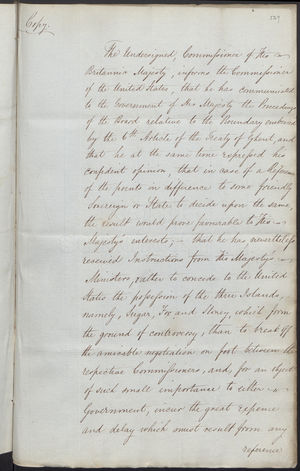 Copy.
The Undersigned, Commissioner of His
Britannic Majesty, informs the Commissioner
of the United States, that he has communicated
to the Government of His Majesty the Proceedings
of the Board relative to the Boundary embraced
by the 6th Article of the Treaty of Ghent, and
that he at the same time expressed his
confident opinion, that in case of a Reference
of the points in difference to some friendly
Sovereign or State to decide upon the same,
the result would prove favorable to His
Majesty's interests; that he has nevertheless
received Instructions from His Majesty's
Ministers, rather to concede to the United
States the possession of the three Islands,
namely, Sugar, Fox and Stoney, which form
the ground of controversy, than to break off
the amicable negotiation on foot between the
respective Commissioners, and, for an object
of such small importance to either
Government, incur the great expence
and delay which must result from any
reference